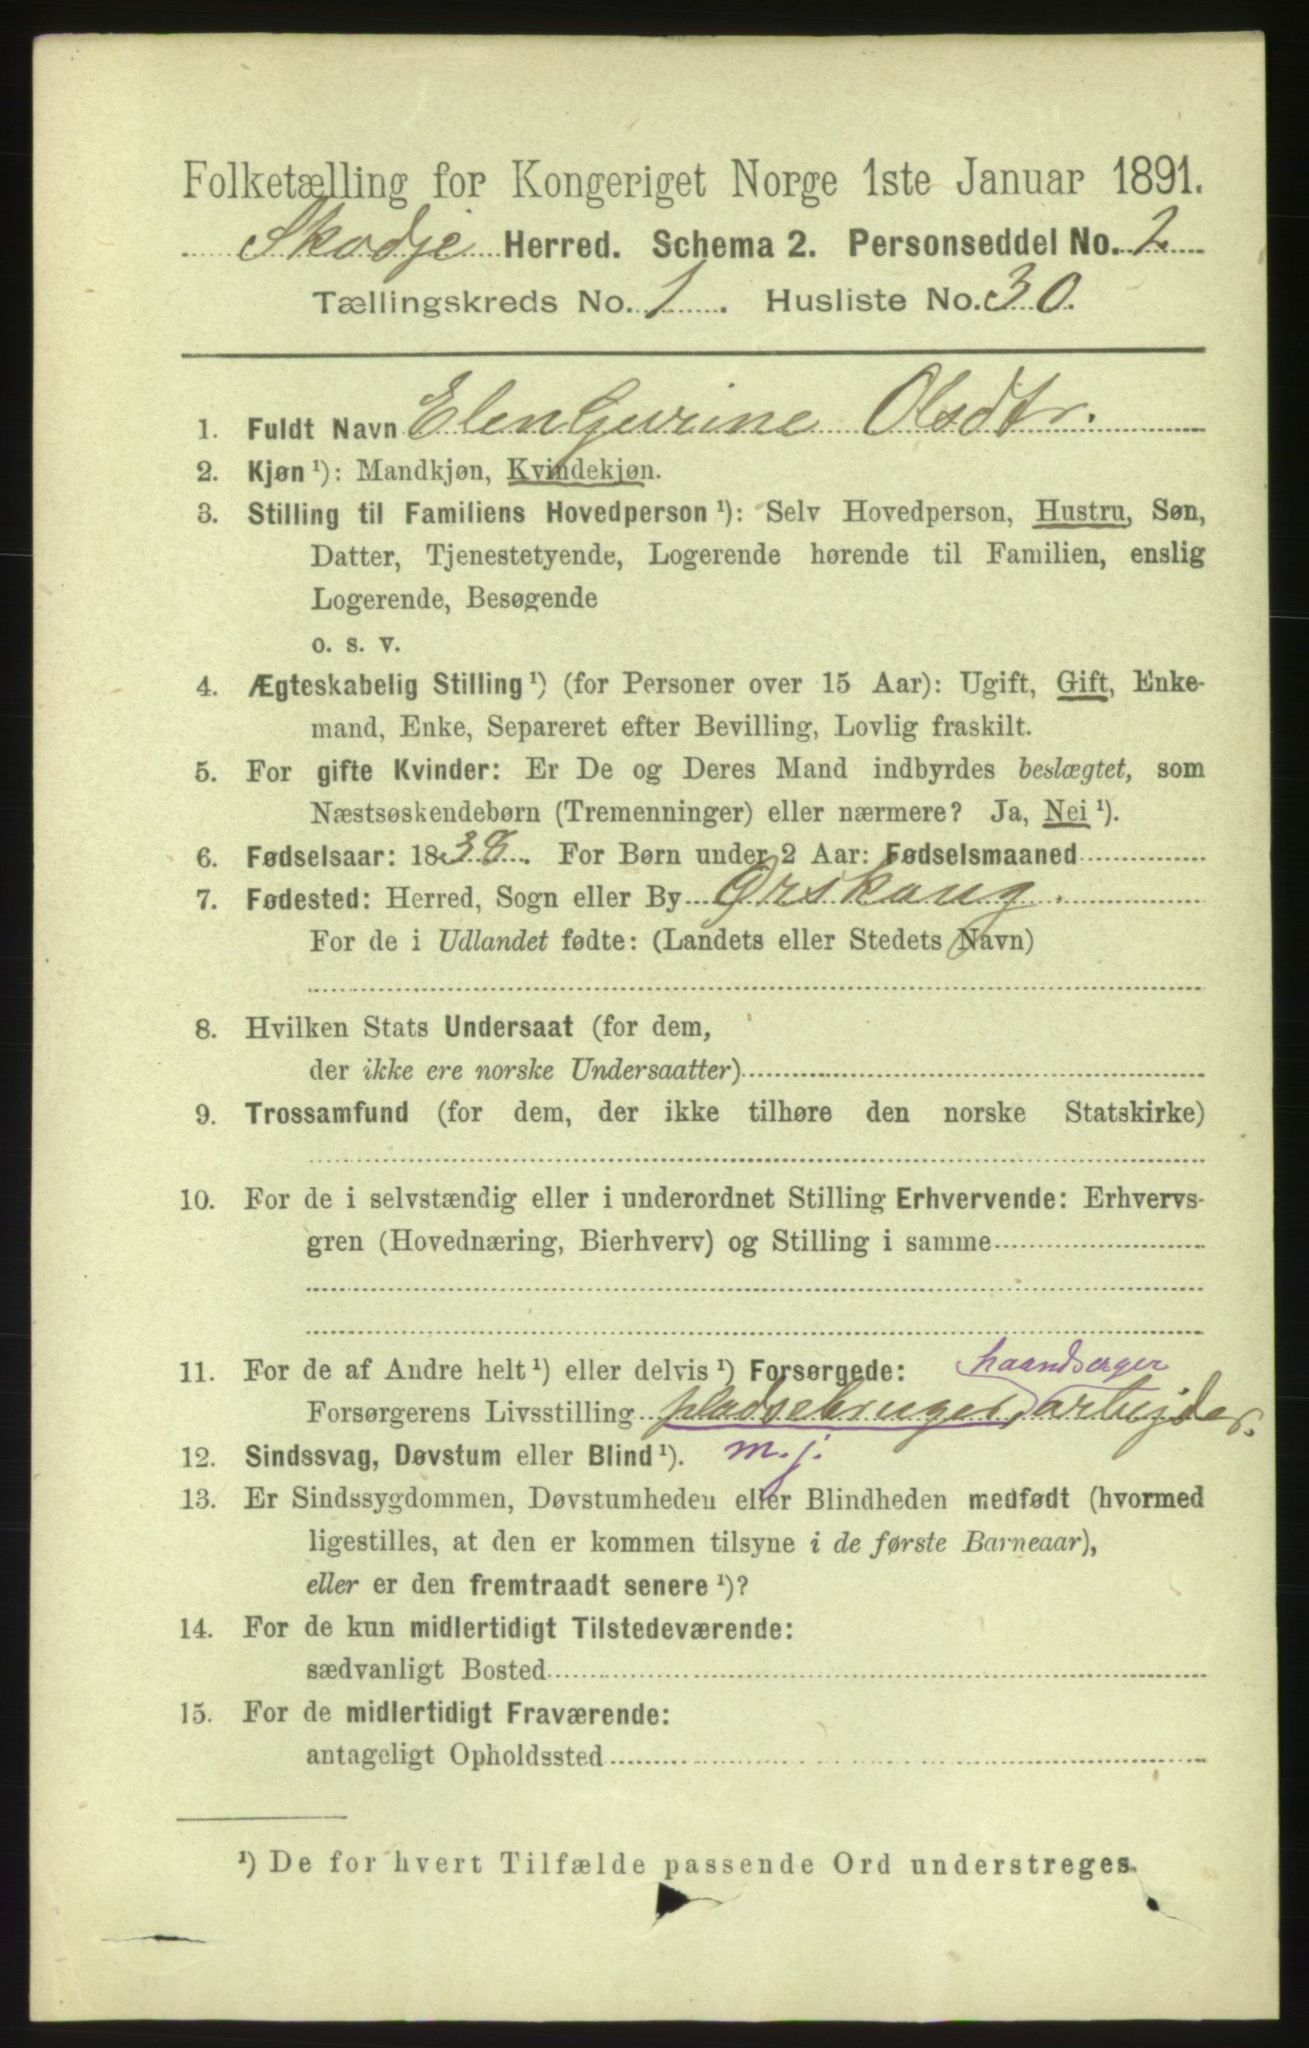 Folketælling for Kongeriget Norge 1ste Januar 1891.
Skodje Herred. Schema 2. Personseddel No. 2
Tællingskreds No. 1. Husliste No. 30.
1. Fuldt Navn Elen Gurine Olsdtr.
2. Kjøn ¹): Mandkjøn, Kvindekjøn.
3. Stilling til Familiens Hovedperson ¹): Selv Hovedperson, Hustru, Søn,
Datter, Tjenestetyende, Logerende hørende til Familien, enslig
Logerende, Besøgende
o. s. v.
4. Ægteskabelig Stilling ¹) (for Personer over 15 Aar): Ugift, Gift, Enke-
mand, Enke, Separeret efter Bevilling, Lovlig fraskilt.
5. For gifte Kvinder: Er De og Deres Mand indbyrdes beslægtet, som
Næstsøskendebørn (Tremenninger) eller nærmere? Ja, Nei ¹).
6. Fødselsaar: 1838. For Børn under 2 Aar: Fødselsmaaned
7. Fødested: Herred, Sogn eller By Ørskoug.
For de i Udlandet fødte: (Landets eller Stedets Navn)
8. Hvilken Stats Undersaat (for dem,
der ikke ere norske Undersaatter)
9. Trossamfund (for dem, der ikke tilhøre den norske Statskirke)
10. For de i selvstændig eller i underordnet Stilling Erhvervende: Erhvervs-
gren (Hovednæring, Bierhverv) og Stilling i samme
11. For de af Andre helt ¹) eller delvis ¹) Forsørgede: haandsager
Forsørgerens Livsstilling pladsebruger, arbejder.
12. Sindssvag, Døvstum eller Blind ¹). m. j.
13. Er Sindssygdommen, Døvstumheden eller Blindheden medfødt (hvormed
ligestilles, at den er kommen tilsyne i de første Barneaar),
eller er den fremtraadt senere ¹)?
14. For de kun midlertidigt Tilstedeværende:
sædvanligt Bosted
15. For de midlertidigt Fraværende:
antageligt Opholdssted
¹) De for hvert Tilfælde passende Ord understreges.